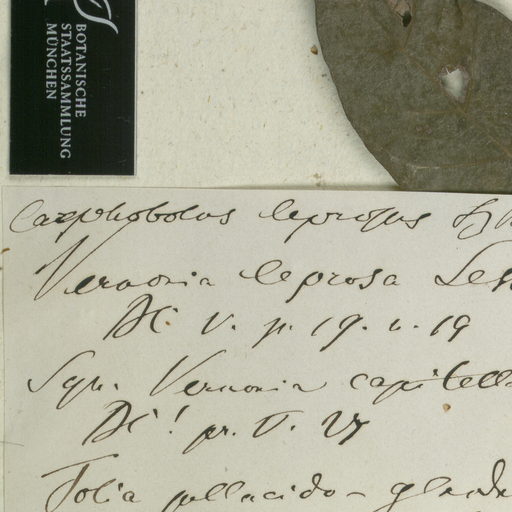 BOTANISCHE
STAATSSAMMLUNG
MÜNCHEN
Carphobolus leprosus
Vernonia leprosa Less
DC. V. p. 19. n. 19
Syn. Vernonia capitell
DC! pr. V. 27
Folia pellucido-glandu